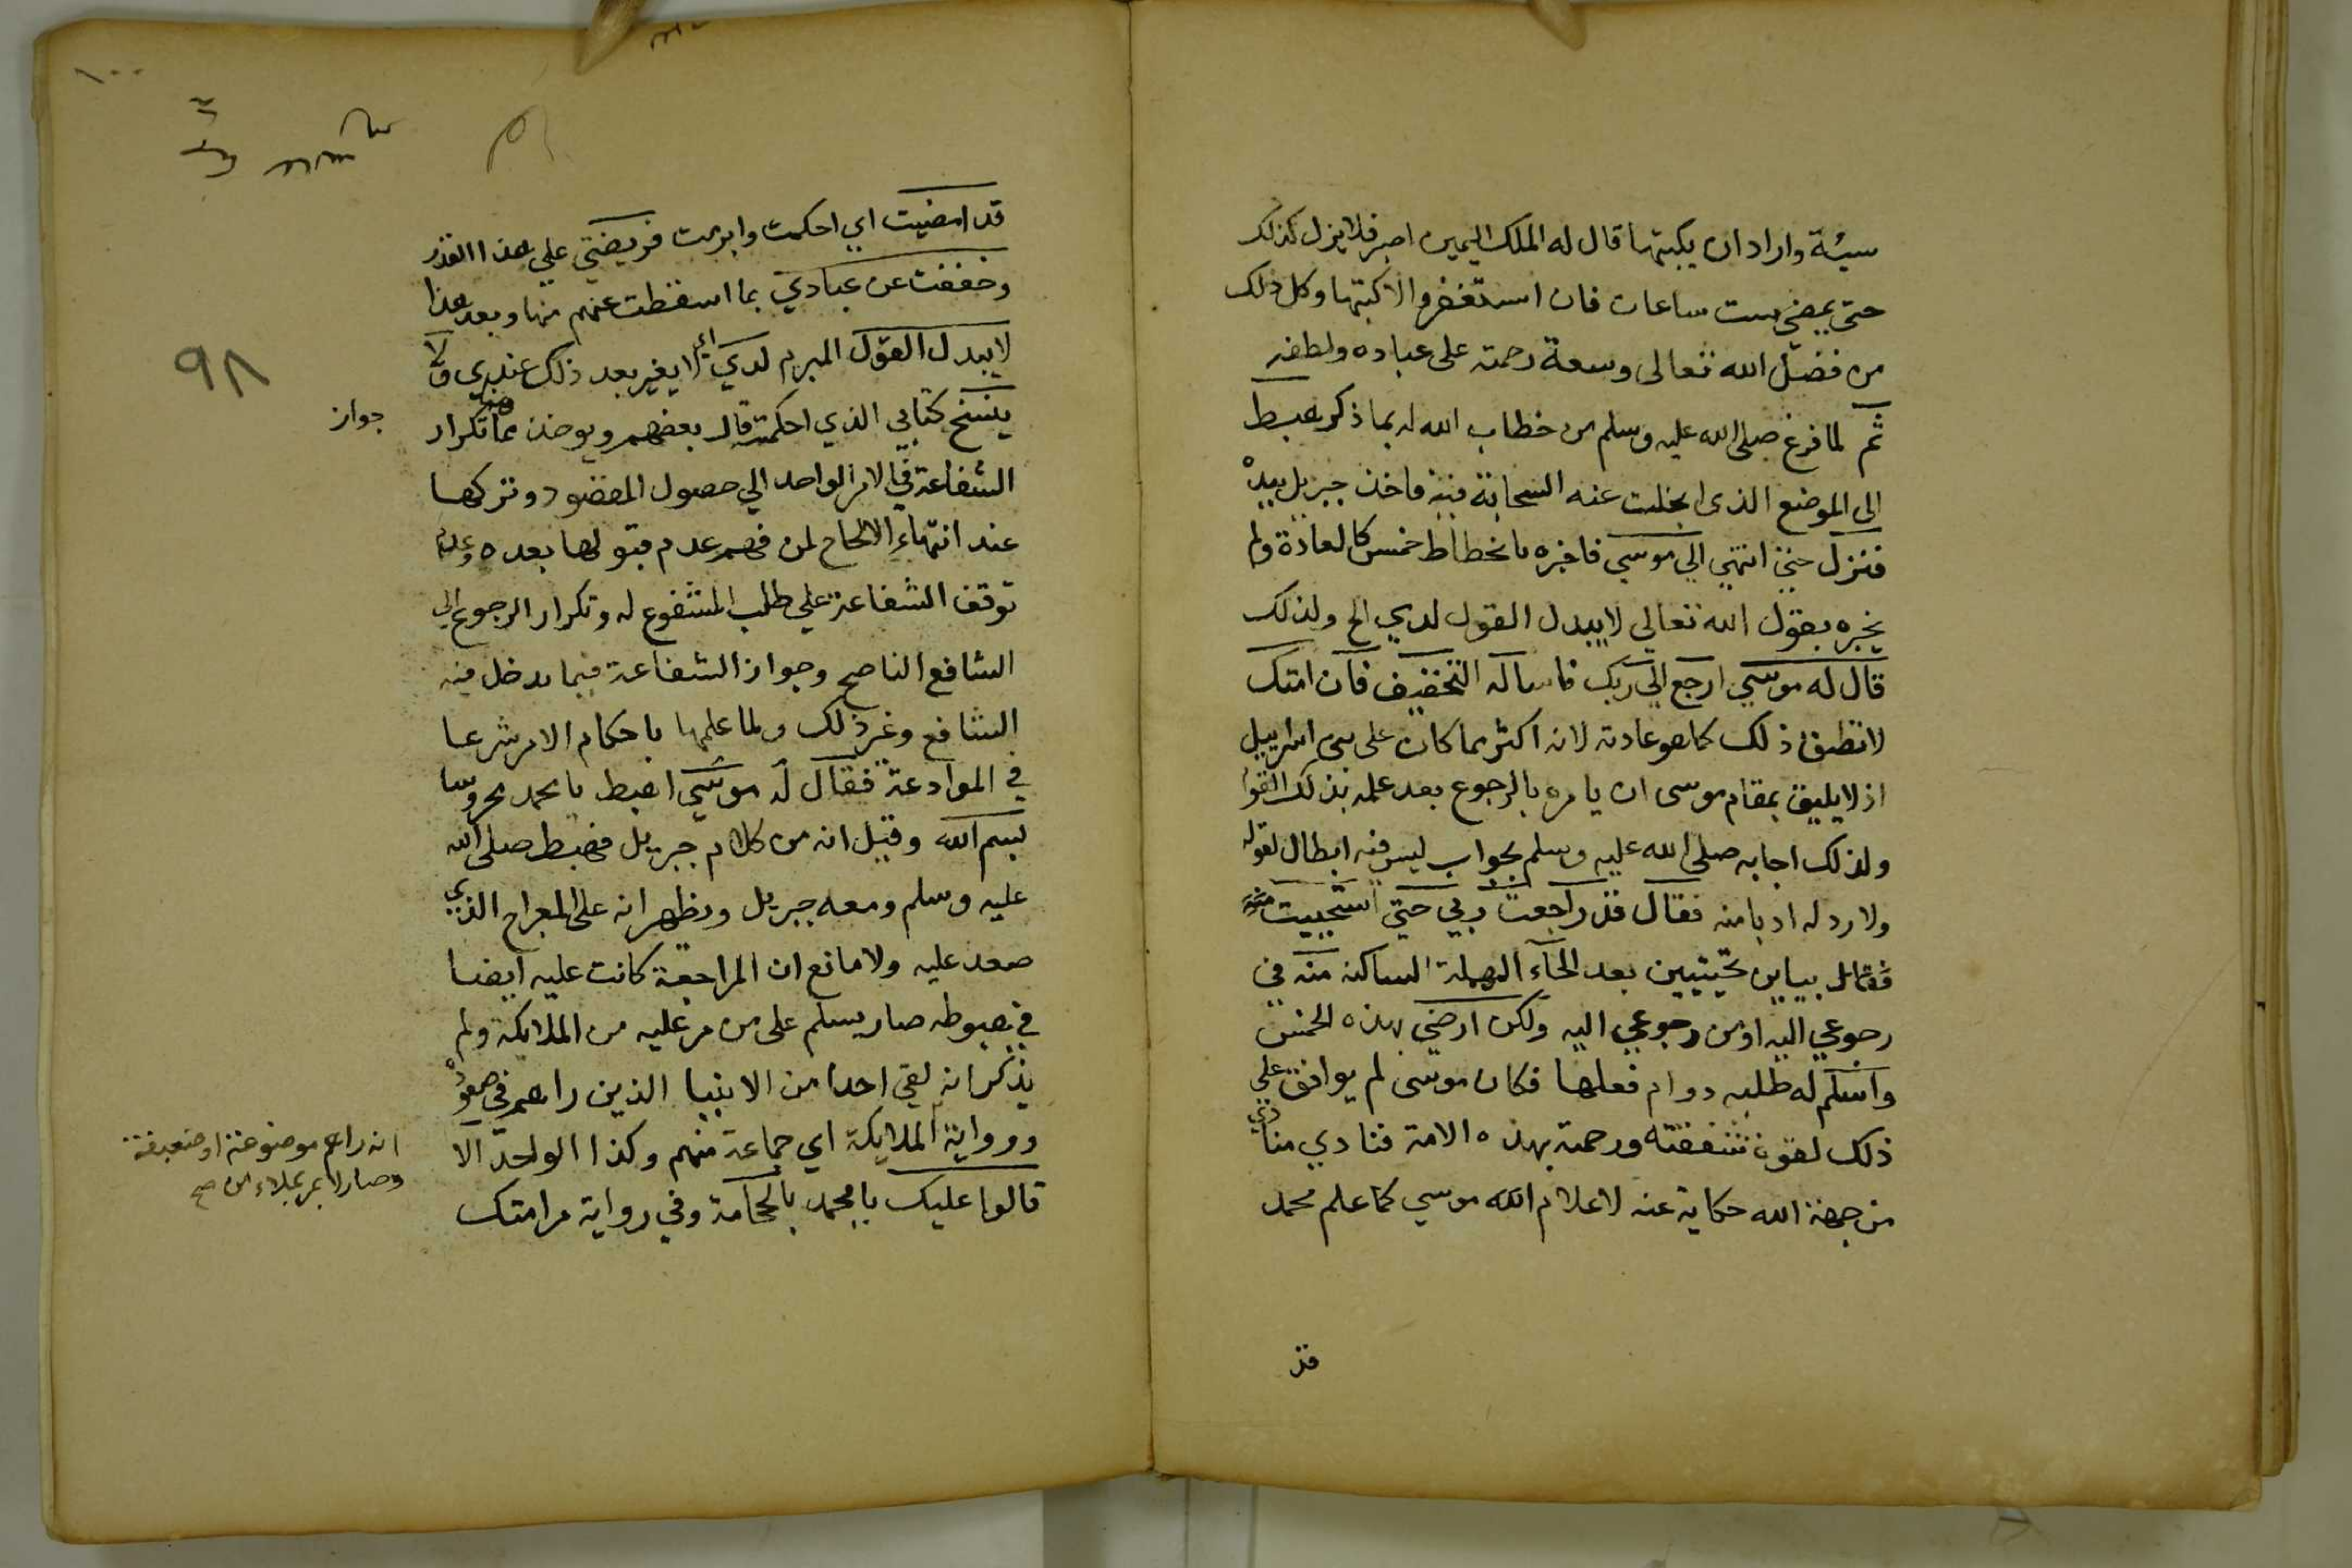 سيئة واراد ان يكتبها قال له الملك اليمين اصبر فلا يزل كذلك
حتى يمضي ست ساعات فان استغفر والا كتبها وكل ذلك
من فضل الله تعالى وسعة رحمته على عباده ولطفه
ثم لما فرغ صلى الله عليه وسلم من خطاب الله له بما ذكر هبط
الى الموضع الذى انجلت عنه السحابة فيه فاخذ جبريل بيده
فنزل حتى انتهي الي موسي فاخبره بانحطاط خمس كالعادة ولم
يخبره بقول الله تعالي لا يبدل القول لدي الخ ولذلك
قال له موسي ارجع الي ربك فاساله التخفيف فان امتك
لا تطيق ذلك كما هو عادته لانه اكثر مما كان على بنى اسراييل
اذ لا يليق بمقام موسى ان يامره بالرجوع بعد علمه بذلك القول
ولذلك اجابه صلى الله عليه وسلم بجواب ليس فيه ابطال لقوله
ولا رد له ادبا منه فقال قد راجعت ربي حتي استحييت منه
بيايين تحتيتين بعد الحآء المهملة الساكنه منه في
رجوعي اليه او من رجوعي اليه ولكن ارضي بهذه الخمس
واسلم له طلبه دوام فعلها فكان موسى لم يوافق علي
ذلك لقوة شفقته ورحمته بهذه الامة فنادي منادي
من جهة الله حكاية عنه لاعلام الله موسي كما علم محمد
قد
١٠٠
٩٨
قد امضيت اي احكمت وابرمت فريضتي علي هذا القدر
وخففت عن عبادي بما اسقطت عنهم منها وبعد هذا
لا يبدل القول المبرم لدي اي لا يغير بعد ذلك عندى ولا
ينسخ كتابي الذي احكمته قال بعضهم ويوخذ من هذا تكرار
جواز
الشفاعة في الامر الواحد الي حصول المقصود وتركها
عند انتهاء الالحاح لمن فهم عدم قبولها بعده وعدم
توقف الشفاعة علي طلب المشفوع له وتكرار الرجوع الي
الشافع الناصح وجواز الشفاعة فيما يدخل فيه
الشافع وغير ذلك ولما علمها باحكام الامر شرعا
في الموادعة فقال له موسي اهبط يا محمد محروسا
بسم الله وقيل انه من كلام جبريل فهبط صلى الله
عليه وسلم ومعه جبريل ويظهر انه على المعراج الذي
صعد عليه ولا مانع ان المراجعة كانت عليه ايضا
في هبوطه صار يسلم على من مر عليه من الملايكة ولم
يذكر انه لقي احدا من الانبيا الذين راهم في صعوده
ورواية الملايكة اي جماعة منهم وكذا الواحد الا
انه راهم موضوعة او ضعيفة
وصار لا يمر بملاء من صح
قالوا عليك يا محمد بالحجامة وفي رواية مر امتك